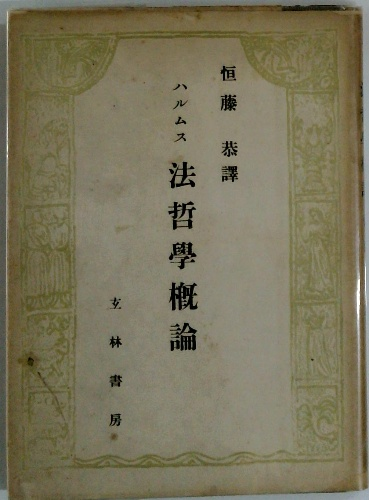 恒藤恭譯
ハルムス
法哲學概論
玄林書房